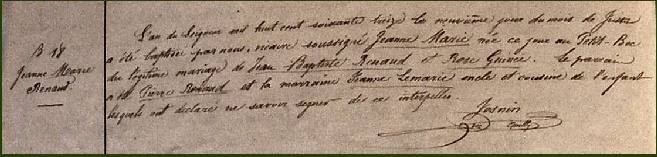 B 18
Jeanne Marie
Renaud
L'an du Seigneur mil huit cent soixante treize le neuvième jour du mois de Juin
a été baptisée par nous, vicaire soussigné Jeanne Marie née ce jour au Petit-Bac
du légitime mariage de Jean Baptiste Renaud et Rose Guince. Le parrain
a été Pierre Renaud et la marraine Jeanne Lemarié oncle et cousine de l'enfant
lesquels ont déclaré ne savoir signer de ce interpellés.
Josnin